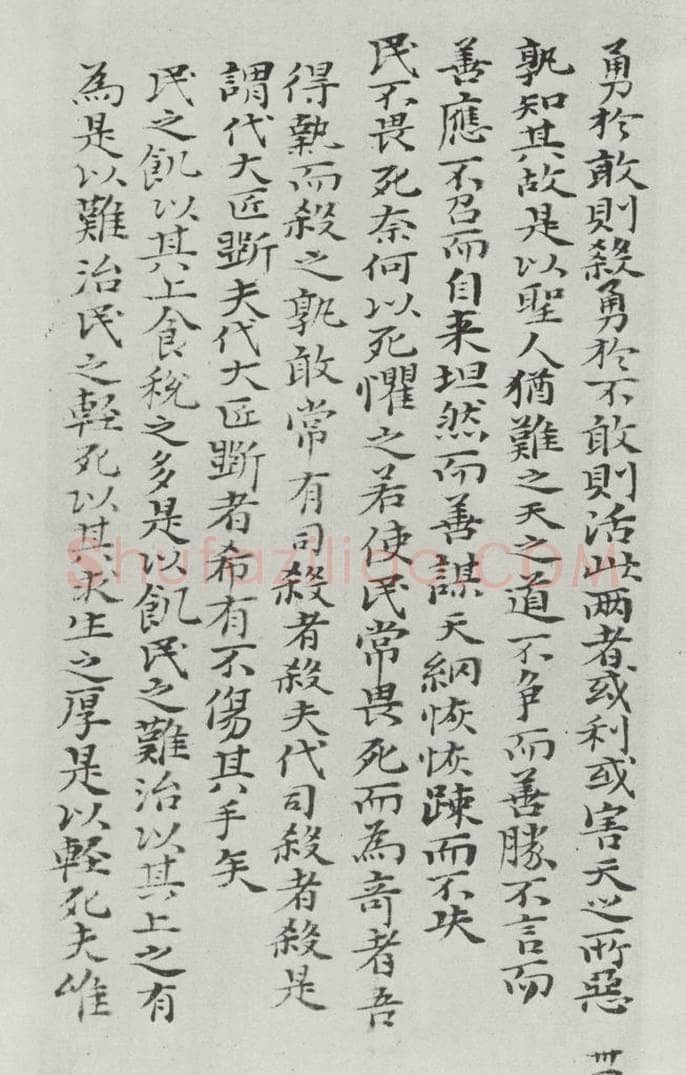 勇於敢則殺勇於不敢則活此两者或利或害天之所惡
孰知其故是以聖人猶難之天之道不争而善勝不言而
善應不召而自来坦然而善謀天網恢恢踈而不失
民不畏死奈何以死懼之若使民常畏死而為奇者吾
得執而殺之孰敢常有司殺者殺夫代司殺者殺是
謂代大匠斲夫代大匠斲者希有不傷其手矣
民之飢以其上食稅之多是以飢民之難治以其上之有
為是以難治民之輕死以其求生之厚是以輕死夫唯
卌
Shufaziliao.COM